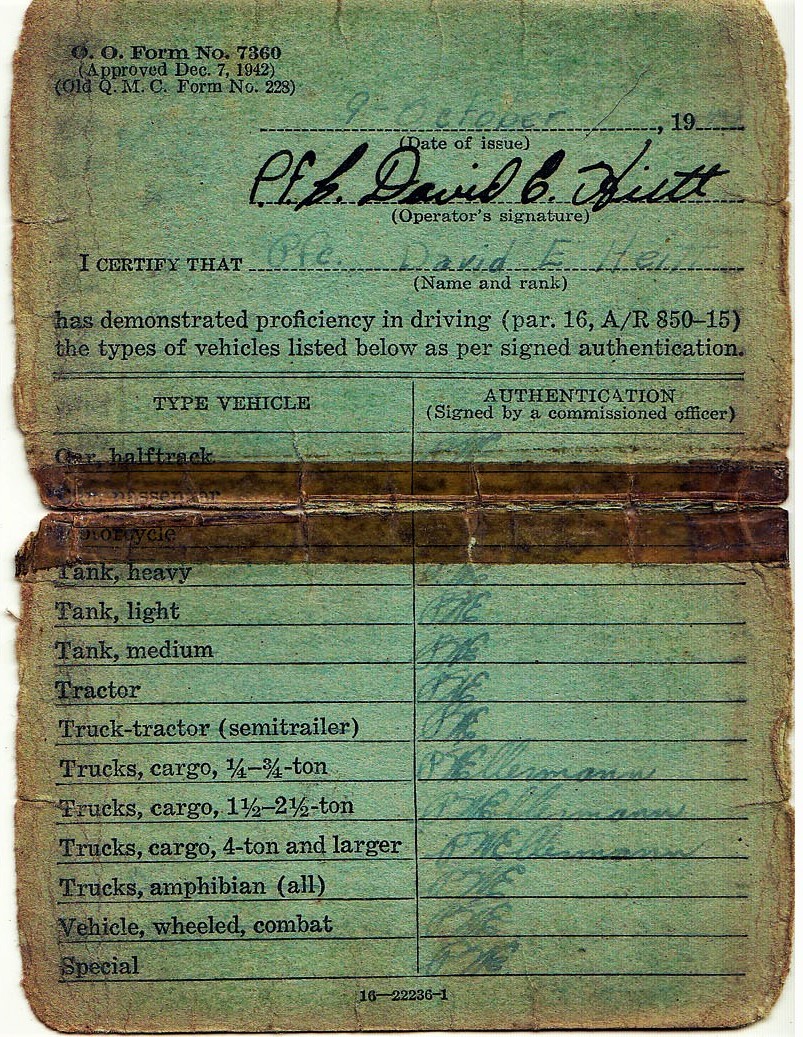 O. O. Form No. 7360
(Approved Dec. 7, 1942)
(Old Q. M. C. Form No. 228)
9 - October , 19
(Date of issue)
Pfc. David E. Hiett
(Operator's signature)
I CERTIFY THAT Pfc. David E Heitt
(Name and rank)
has demonstrated proficiency in driving (par. 16, A/R 850–15)
the types of vehicles listed below as per signed authentication.
TYPE VEHICLE AUTHENTICATION
(Signed by a commissioned officer)
Car, halftrack
passenger
Motorcycle
Tank, heavy
Tank, light PWE
Tank, medium PWE
Tractor PWE
Truck-tractor (semitrailer) PWE
Trucks, cargo, ¼–¾-ton P W Ellermann
Trucks, cargo, 1½–2½-ton P W Ellermann
Trucks, cargo, 4-ton and larger P W Ellermann
Trucks, amphibian (all) PWE
Vehicle, wheeled, combat PWE
Special PWE
16—22236-1